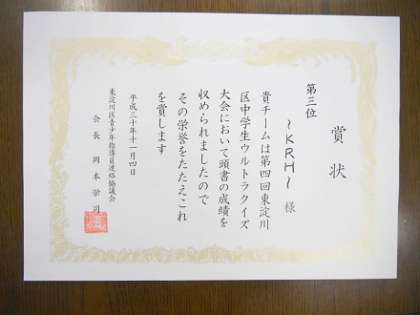 賞状
第三位
~KRH~ 様
貴チームは第四回東淀川
区中学生ウルトラクイズ
大会において頭書の成績を
収められましたので
その栄誉をたたえこれ
を賞します
平成三十年十一月四日
東淀川区青少年指導員連絡協議会
会長 岡本